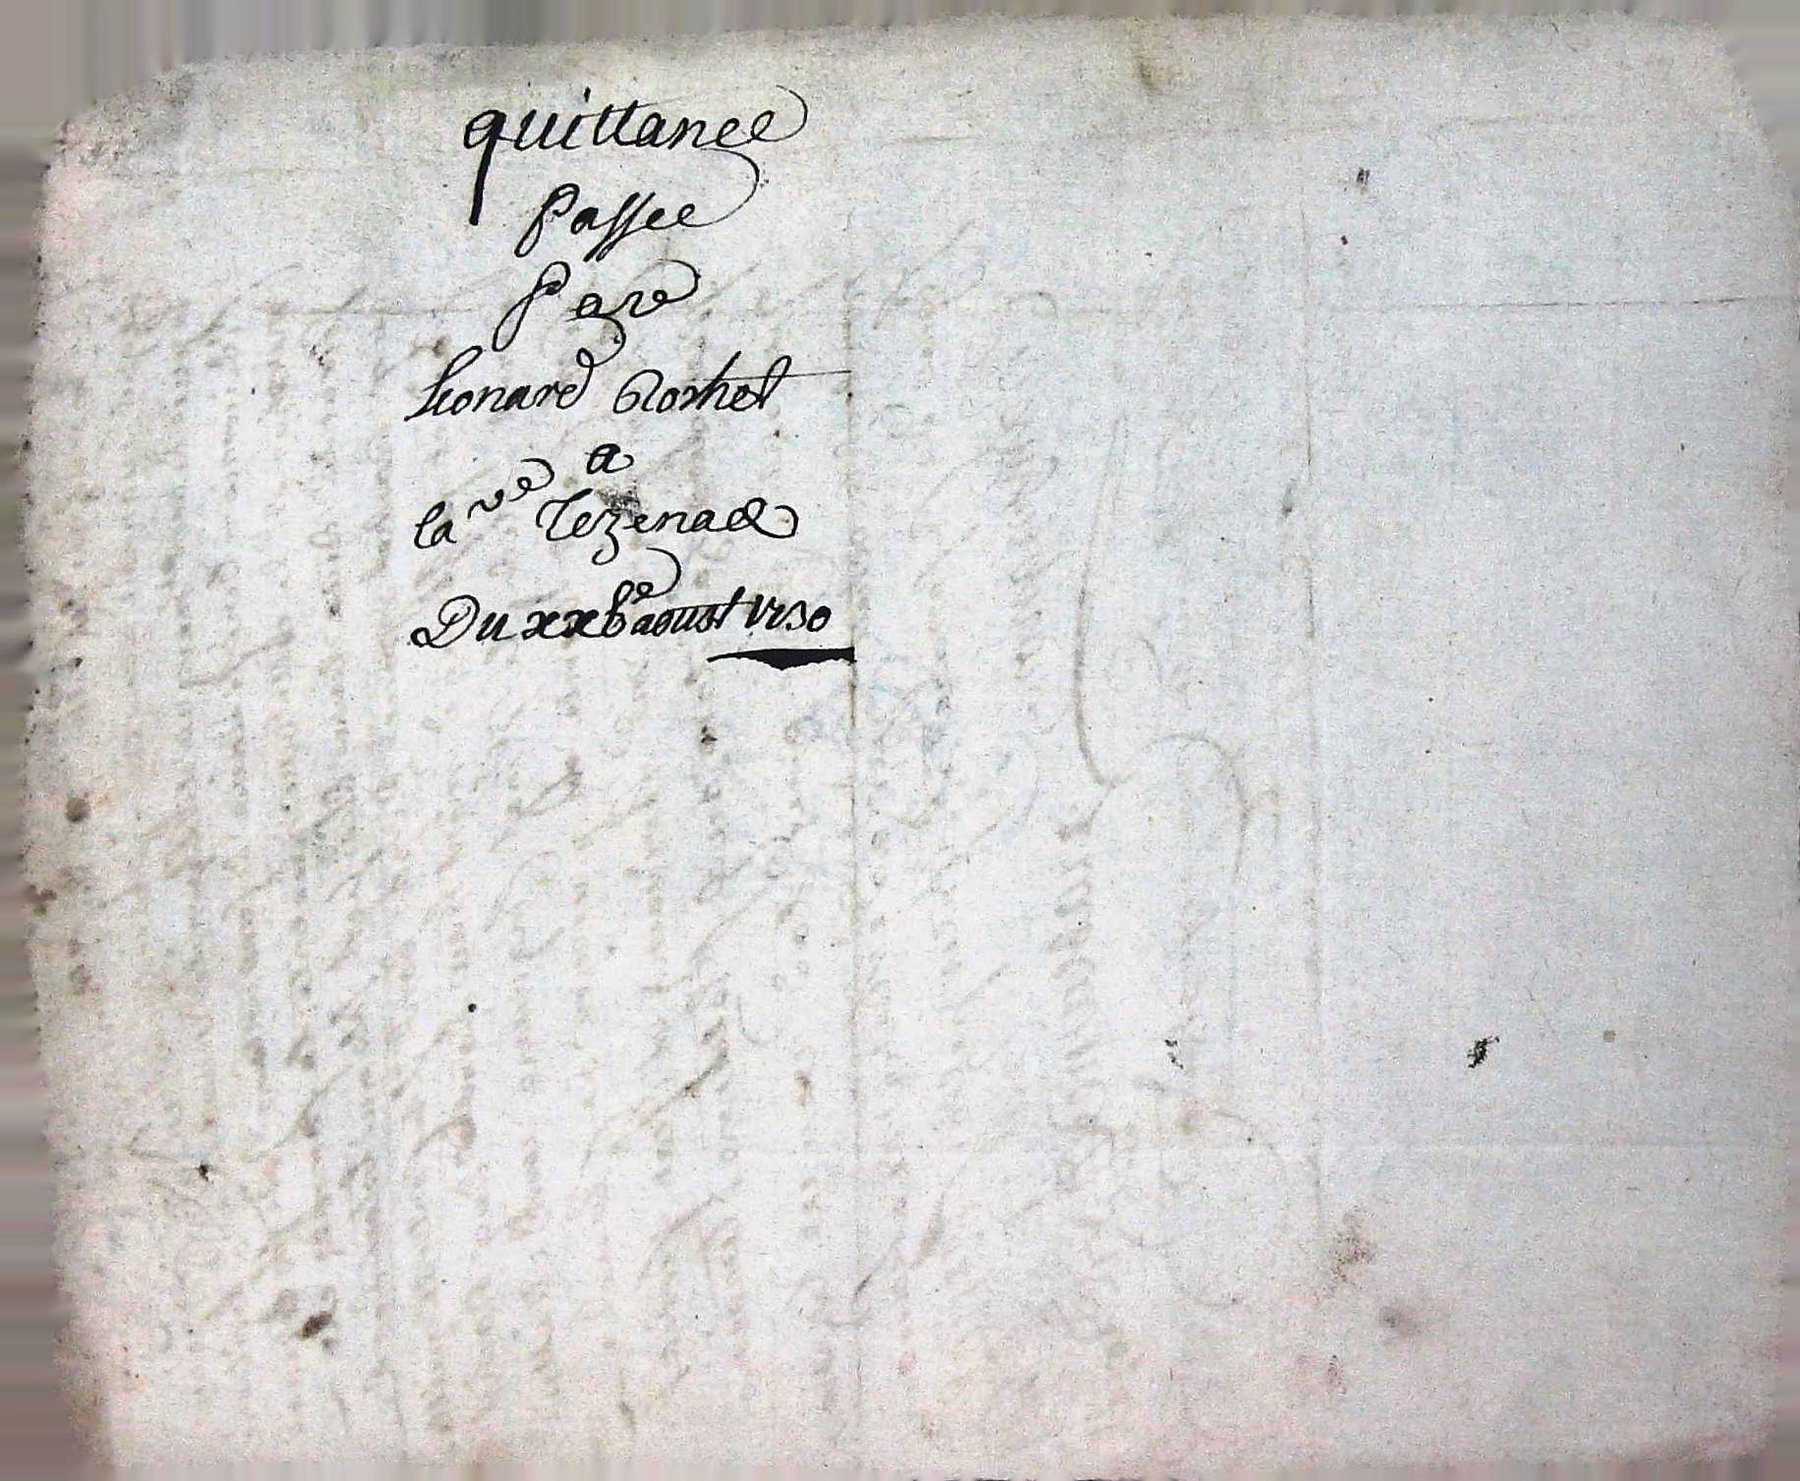 quittance
Passee
Par
Leonard Rochet
a
la ve Tezenas
Du xxbe aoust 1730